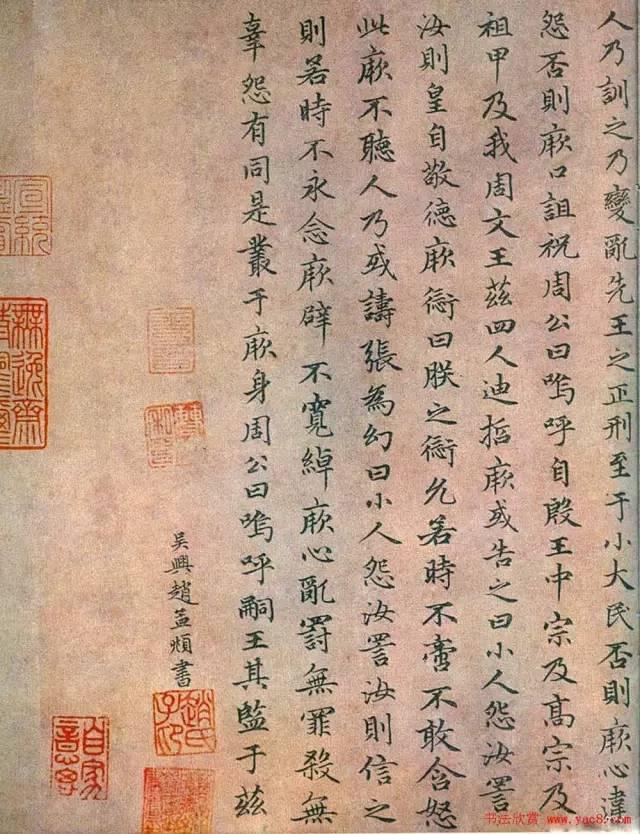 人乃訓之乃變亂先王之正刑至于小大民否則厥心違
怨否則厥口詛祝周公曰嗚呼自殷王中宗及高宗及
祖甲及我周文王茲四人迪哲厥或告之曰小人怨汝詈
汝則皇自敬德厥愆曰朕之愆允若時不啻不敢含怒
此厥不聽人乃或譸張為幻曰小人怨汝詈汝則信之
則若時不永念厥辟不寬綽厥心亂罰無罪殺無
辜怨有同是叢于厥身周公曰嗚呼嗣王其監于茲
吳興趙孟頫書
趙氏子昂
無逸齋
宣統
书法欣赏 www.yac8.com